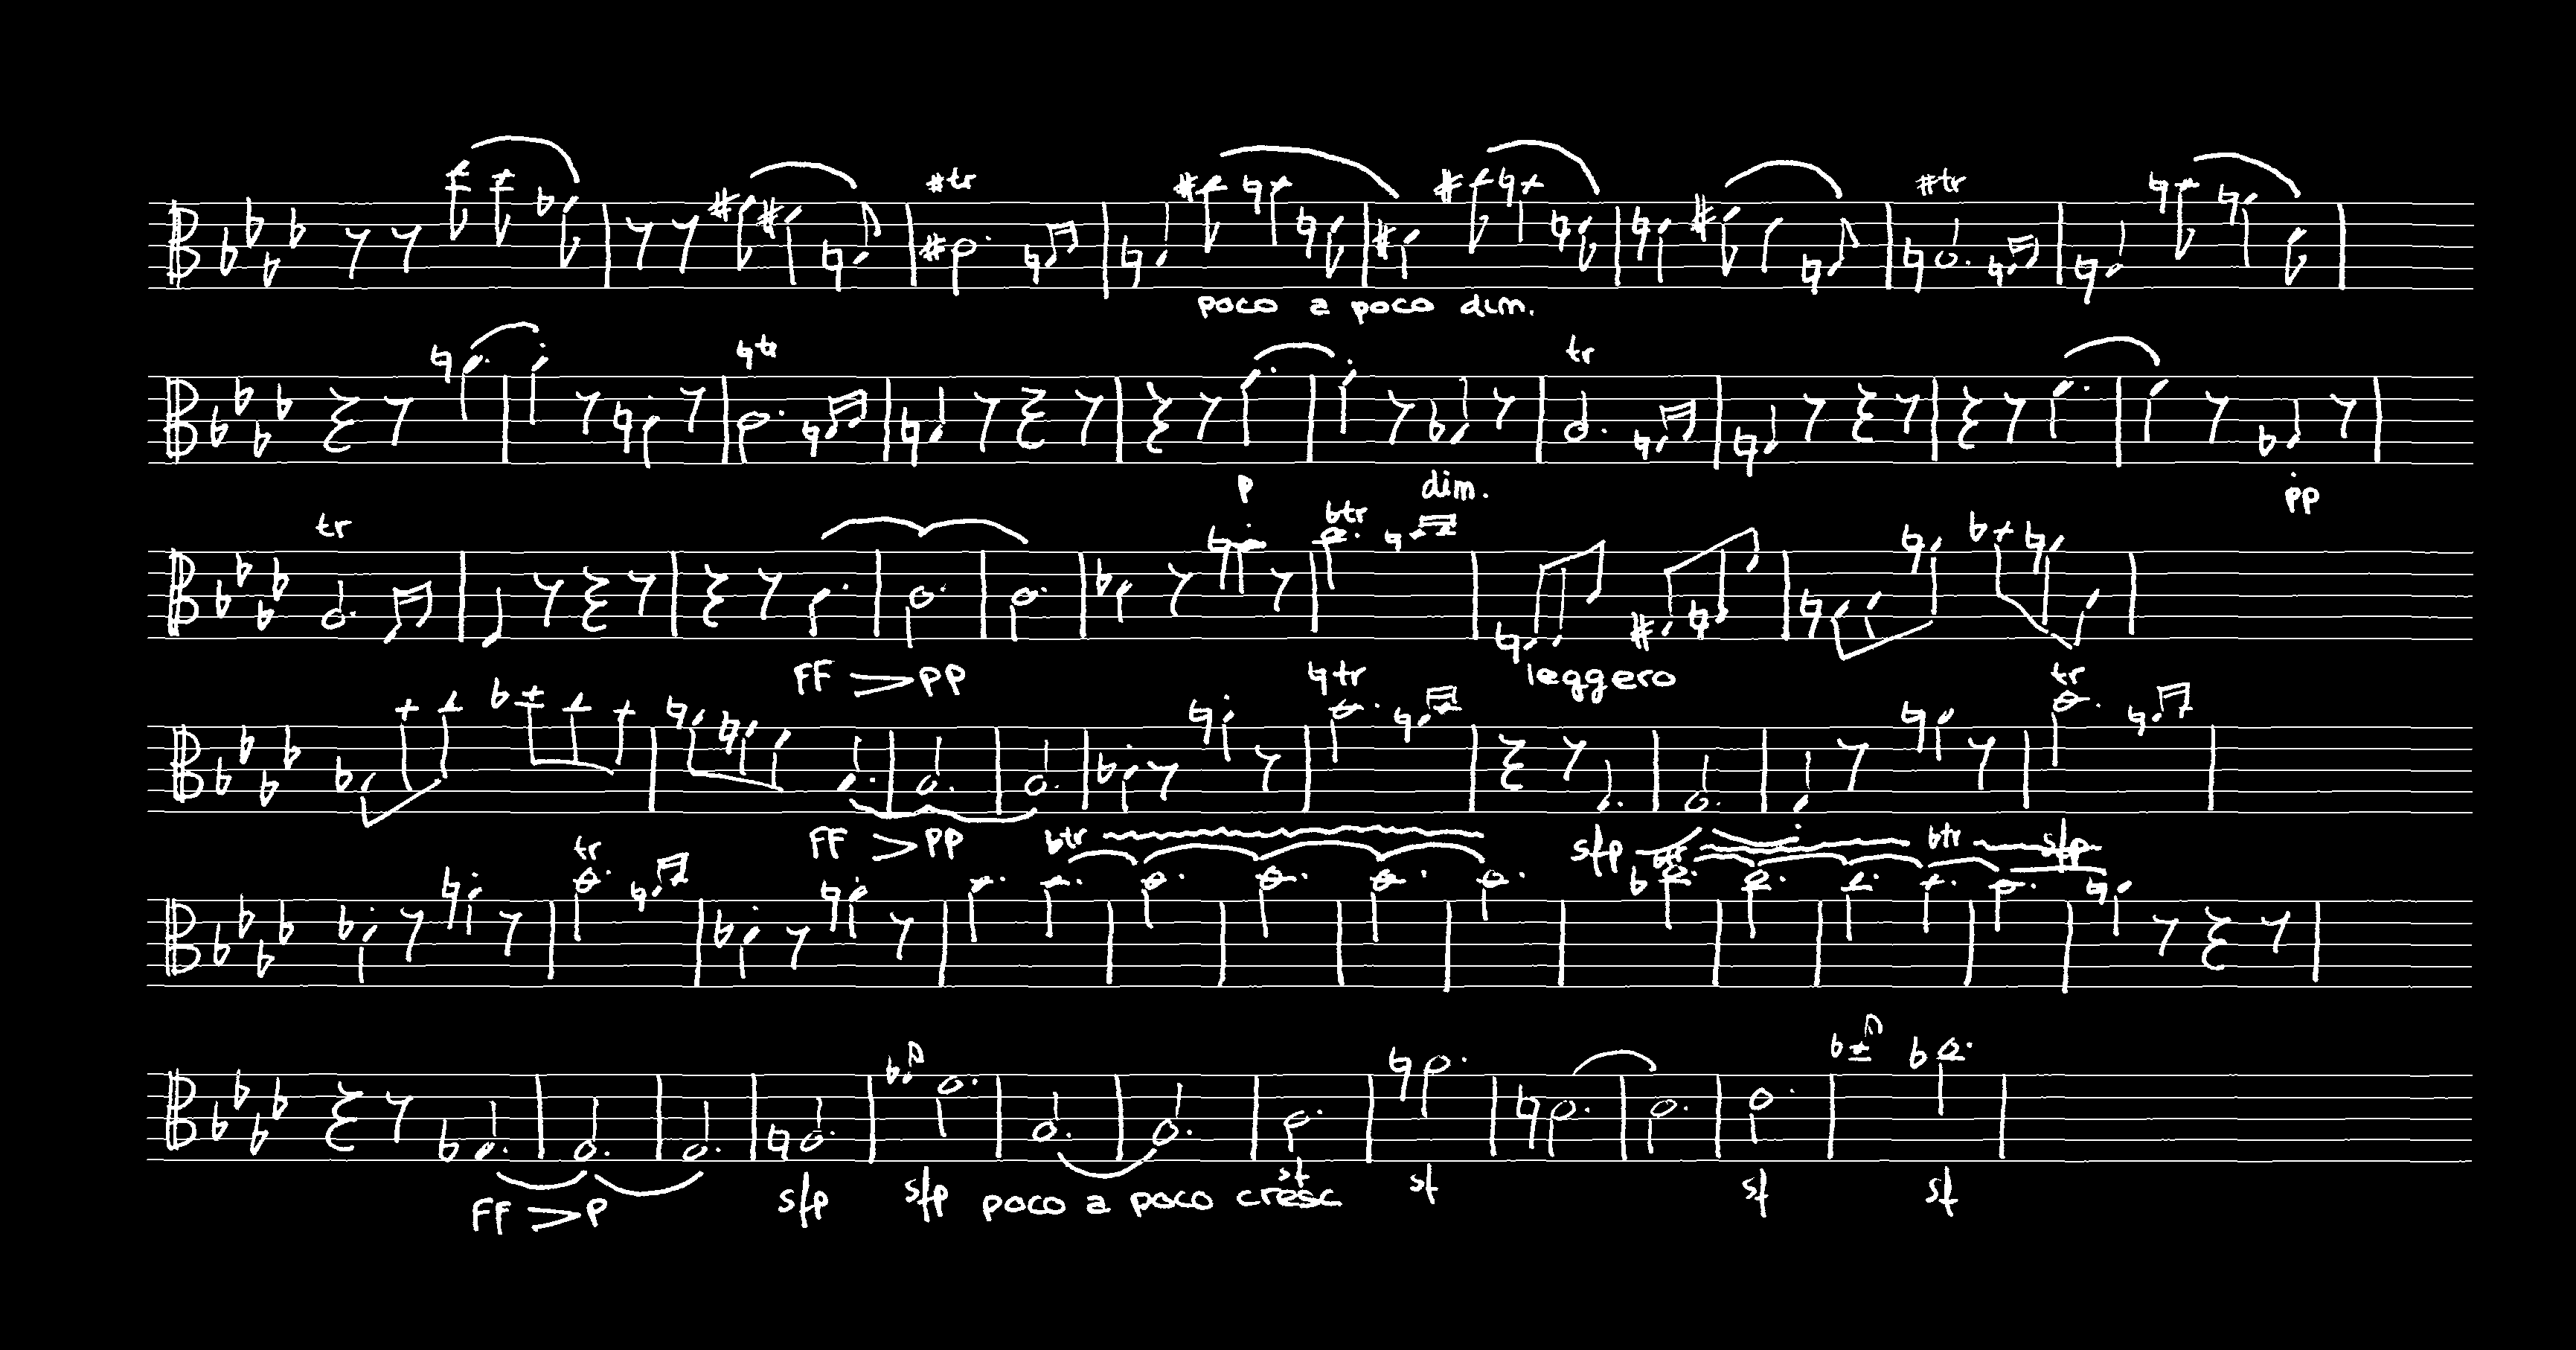 tr tr
poco a poco dim.
tr tr
p dim. pp
tr btr
FF PP leggero
tr tr
FF PP sfp sfp
tr btr btr btr
FF P sfp sfp poco a poco cresc sf sf sf sf